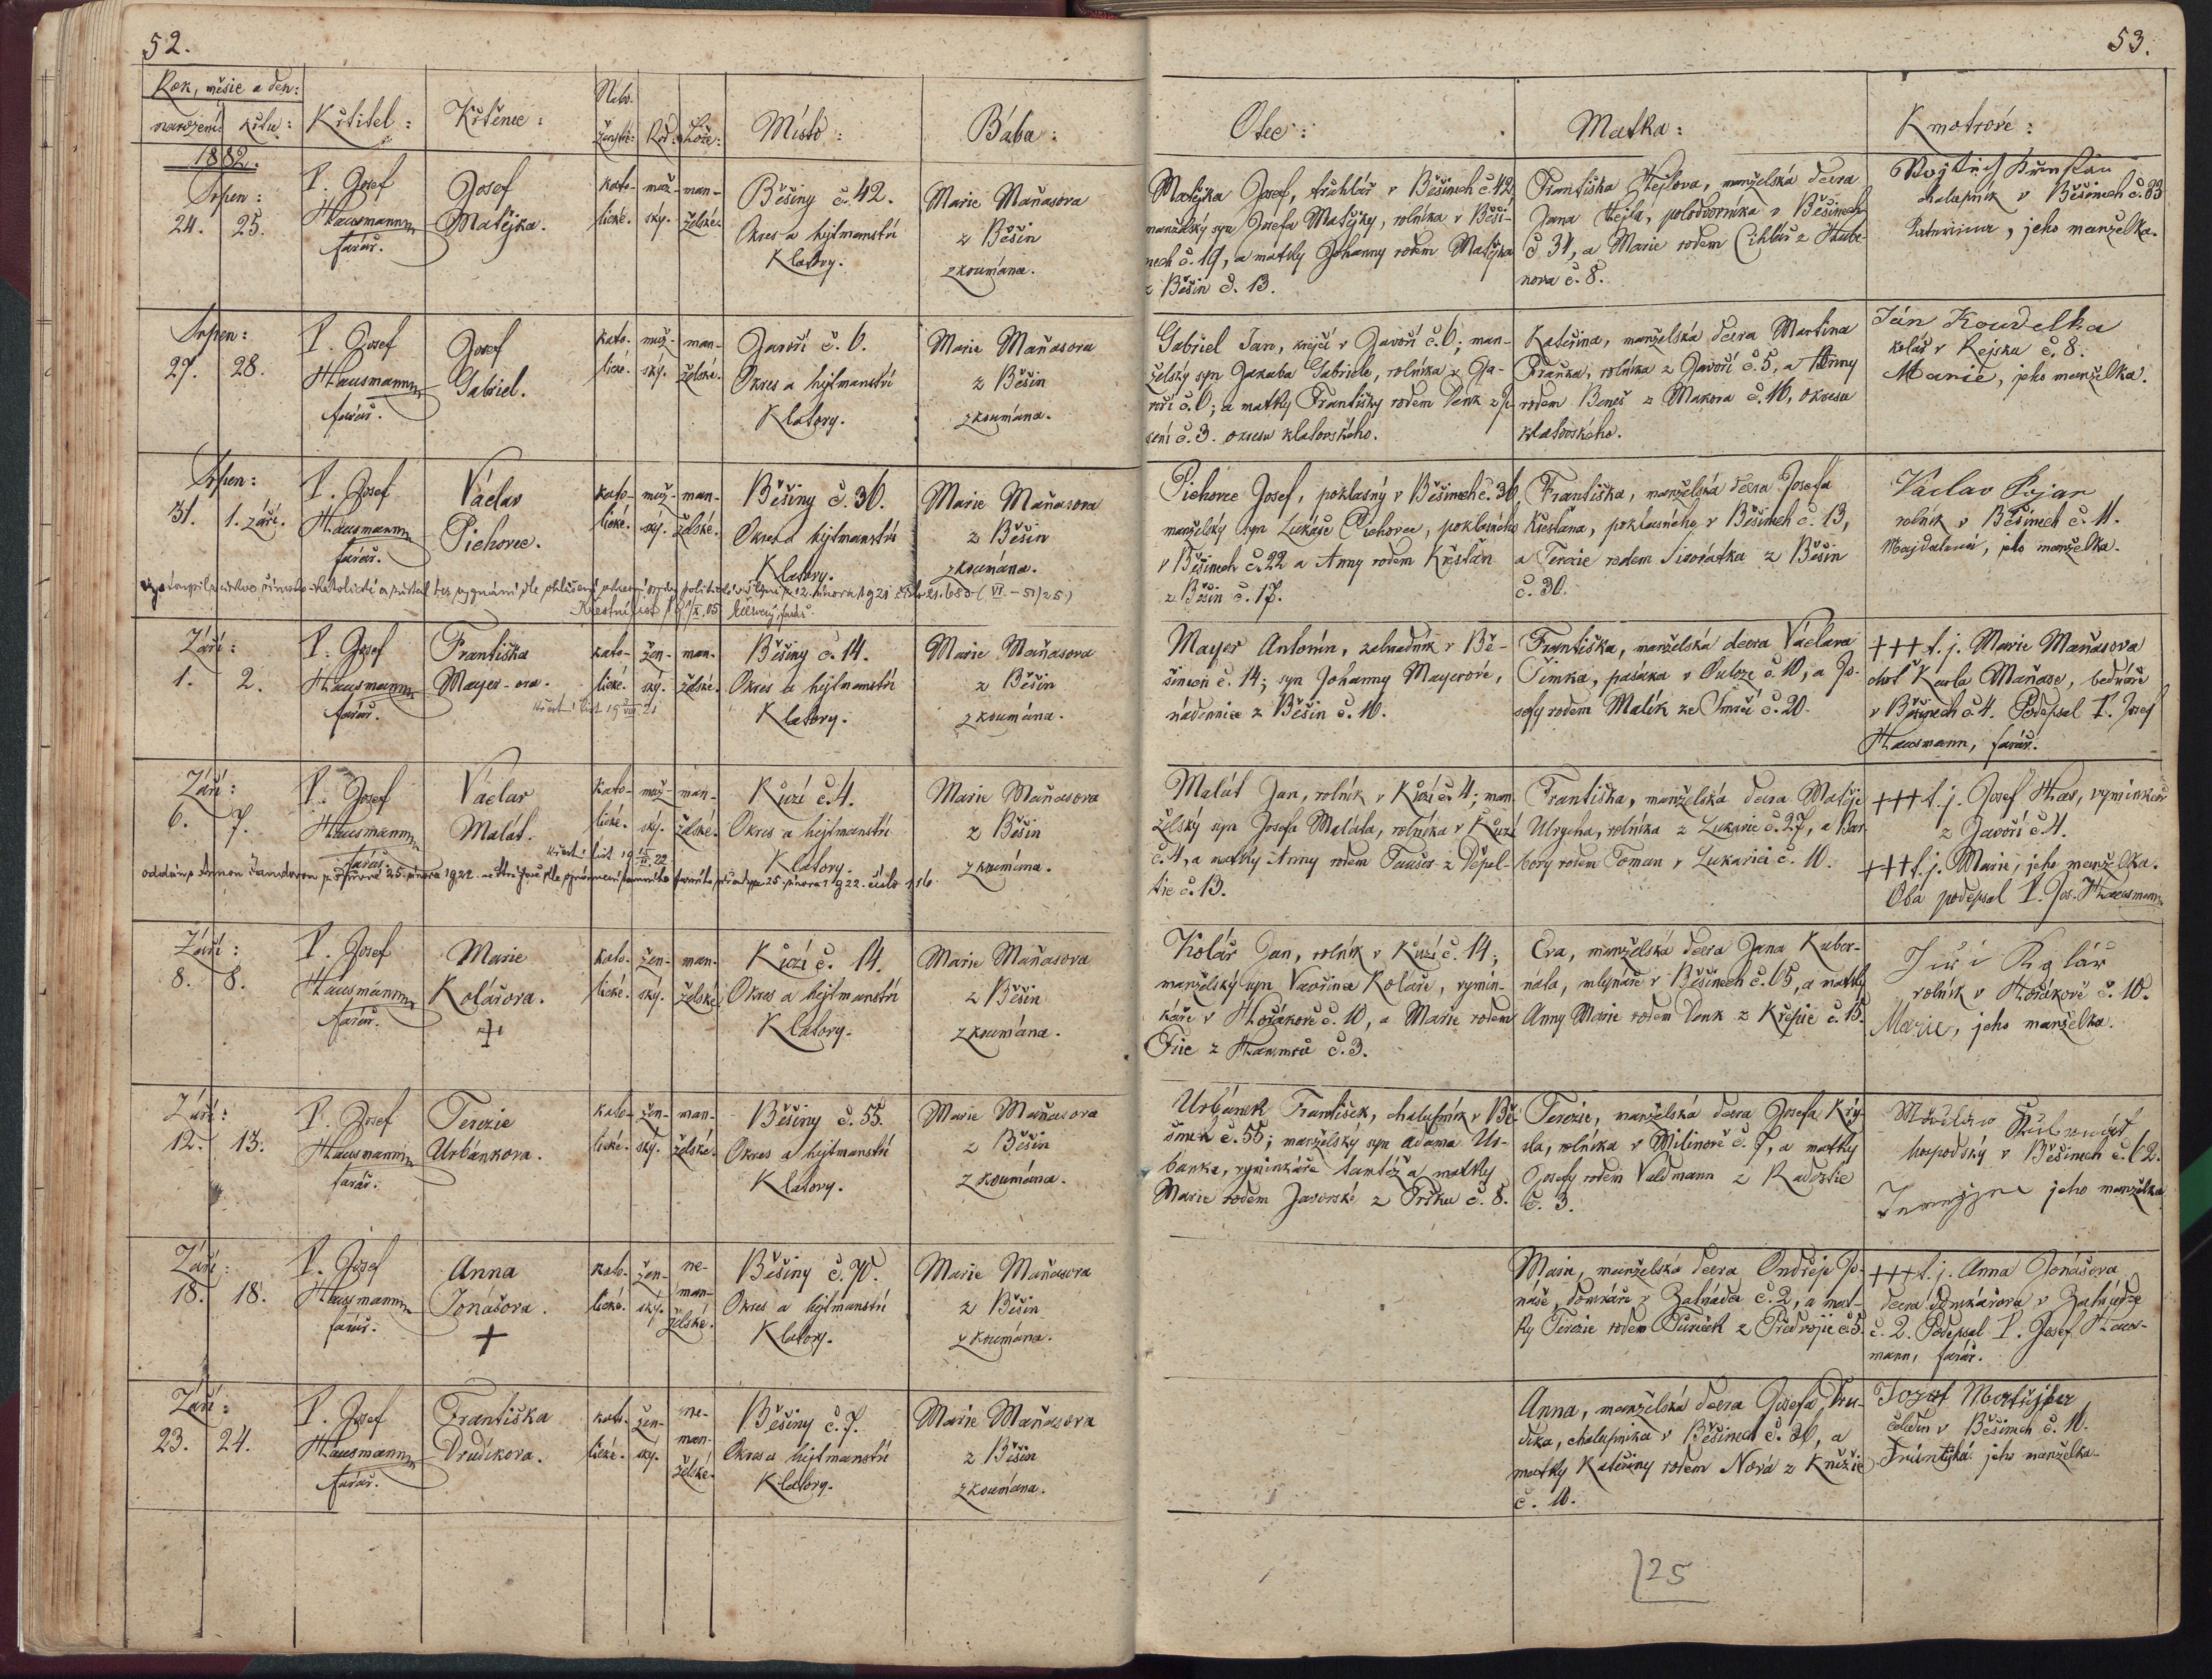 52.
Rok, měsíc a den:
narození: křtu:
Křtitel:
Křtěnec:
Nábo-
ženství:
Rod:
Lože:
Místo:
Bába:
1882.
Srpen:
24. 25.
P. Josef
Hausmann
farář.
Josef
Matějka.
kato-
lické.
muž-
ský.
man-
želské.
Běšiny č. 42.
Okres a hejtmanství
Klatovy.
Marie Maňasova
z Běšin
zkoumána.
Srpen:
27. 28.
P. Josef
Hausmann
farář.
Josef
Gabriel.
kato-
lické.
muž-
ský.
man-
želské.
Javoří č. 6.
Okres a hejtmanství
Klatovy.
Marie Maňasova
z Běšin
zkoumána.
Srpen:
31. 1. září.
P. Josef
Hausmann
farář.
Václav
Pichovec.
kato-
lické.
muž-
ský.
man-
želské.
Běšiny č. 36.
Okres a hejtmanství
Klatovy.
Marie Maňasova
z Běšin
zkoumána.
Září:
1. 2.
P. Josef
Hausmann
farář.
Františka
Mayer-ova.
kato-
lické.
žen-
ský.
man-
želské.
Běšiny č. 14.
Okres a hejtmanství
Klatovy.
Marie Maňasova
z Běšin
zkoumána.
Září:
6. 7.
P. Josef
Hausmann
farář.
Václav
Malát.
kato-
lické.
muž-
ský.
man-
želské.
Kůzí č. 4.
Okres a hejtmanství
Klatovy.
Marie Maňasova
z Běšin
zkoumána.
Září:
8. 8.
P. Josef
Hausmann
farář.
Marie
Kolářova.
+
kato-
lické.
žen-
ský.
man-
želské.
Kůzí č. 14.
Okres a hejtmanství
Klatovy.
Marie Maňasova
z Běšin
zkoumána.
Září:
12. 13.
P. Josef
Hausmann
farář.
Terezie
Urbánkova.
kato-
lické.
žen-
ský.
man-
želské.
Běšiny č. 55.
Okres a hejtmanství
Klatovy.
Marie Maňasova
z Běšin
zkoumána.
Září:
18. 18.
P. Josef
Hausmann
farář.
Anna
Jonášova.
+
kato-
lické.
žen-
ský.
ne-
man-
želské.
Běšiny č. 70.
Okres a hejtmanství
Klatovy.
Marie Maňasova
z Běšin
zkoumána.
Září:
23. 24.
P. Josef
Hausmann
farář.
Františka
Drudíkova.
kato-
lické.
žen-
ský.
ne-
man-
želské.
Běšiny č. 7.
Okres a hejtmanství
Klatovy.
Marie Maňasova
z Běšin
zkoumána.
53.
Otec:
Matka:
Kmotrové:
Matějka Josef, truhlář v Běšinech č. 42,
manželský syn Josefa Matějky, rolníka v Běši-
nech č. 19, a matky Johanny rodem Matějka
z Běšin č. 13.
Františka Hejlova, manželská dcera
Jana Hejla, polodvorníka v Běšinech
č. 31, a Marie rodem Cihlář z Hube-
nova č. 8.
chalupník v Běšinech č. 33
Kateřina, jeho manželka.
Gabriel Jan, krejčí v Javoří č. 6; man-
želský syn Jakuba Gabriele, rolníka v Ja-
voří č. 6; a matky Františky rodem Denk z
č. 3. okresu klatovského.
Kateřina, manželská dcera Martina
rolníka z Javoří č. 5, a Anny
rodem Beneš z Makova č. 16, okresu
klatovského.
Ján Koudelka
kolář v Rejsku č. 8.
Marie, jeho manželka.
Pichovec Josef, poklasný v Běšinech č. 36,
manželský syn Lukáše Pichovce, poklasného
v Běšinech č. 22 a Anny rodem Křesťan
z Běšin č. 17.
Františka, manželská dcera Josefa
Křesťana, poklasného v Běšinech č. 13,
a Terezie rodem Sivořátka z Běšin
č. 30.
Václav Pojar
rolník v Běšinech č. 11.
Majdalena, jeho manželka.
Mayer Antonín, zahradník v Bě-
šinech č. 14; syn Johanny Mayerové,
nádennice z Běšin č. 10.
Františka, manželská dcera Václava
Šimka, pasáka v č. 10, a Jo-
sefy rodem Malík ze Smrčí č. 20.
+++ t. j. Marie Maňasova
choť Karla Maňase, bednáře
v Běšinech č. 4. Podepsal P. Josef
Hausmann, farář.
Malát Jan, rolník v Kůzí č. 4; man-
želský syn Josefa Maláta, rolníka v Kůzí
č. 4, a matky Anny rodem Taušer z Děpol-
tic č. 13.
Františka, manželská dcera Matěje
Ulrycha, rolníka z Lukavic č. 27, a Bar-
bory rodem Toman v Lukavici č. 10.
+++ t. j. Josef Has, výminkář
z Javoří č. 4.
+++ t. j. Marie, jeho manželka.
Oba podepsal P. Jos. Hausmann
Kolář Jan, rolník v Kůzí č. 14;
manželský syn Vavřince Koláře, výmin-
káře v Hořákově č. 10, a Marie rodem
z č. 3.
Eva, manželská dcera Jana Kuber-
náta, mlynáře v Běšinech č. 65, a matky
Anny Marie rodem Denk z Křepic č. 15.
Juři Kolár
rolník v Hořákově č. 10.
Marie, jeho manželka.
Urbánek František, chalupník v Bě-
šinech č. 55; manželský syn Adama Ur-
banka, výminkáře tamtéž a matky
Marie rodem Javorské z č. 8.
Terezie, manželská dcera Josefa Krý-
sla, rolníka v Milínově č. 7, a matky
Josefy rodem Valdmann z Radostic
č. 3.
hospodský v Běšinech č. 62.
jeho manželka
Marie, manželská dcera Ondřeje Jo-
náše, domkáře v č. 2, a mat-
ky Terezie rodem Tureček z Předvojic č. 5.
+++ t. j. Anna Jonášova
dcera domkářova v
č. 2. Podepsal P. Josef Haus-
mann, farář.
Anna, manželská dcera Josefa Dru-
díka, chalupníka v Běšinech č. 30, a
matky Kateřiny rodem Nová z Kněžic
č. 10.
Jozef
čeledín v Běšinech č. 10.
jeho manželka.
25